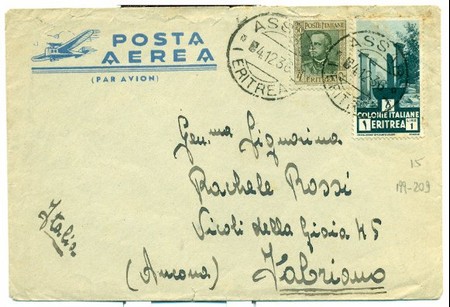 POSTA
AEREA
(PAR AVION)
POSTE ITALIANE
ERITREA
ASS
4.12.36
(ERITREA)
ASS
COLONIE ITALIANE
1 ERITREA LIRE 1
Gen.ma Signorina
Rachele Rossi
Vicoli della Gioia N5
(Ancona) Fabriano
Italia
15